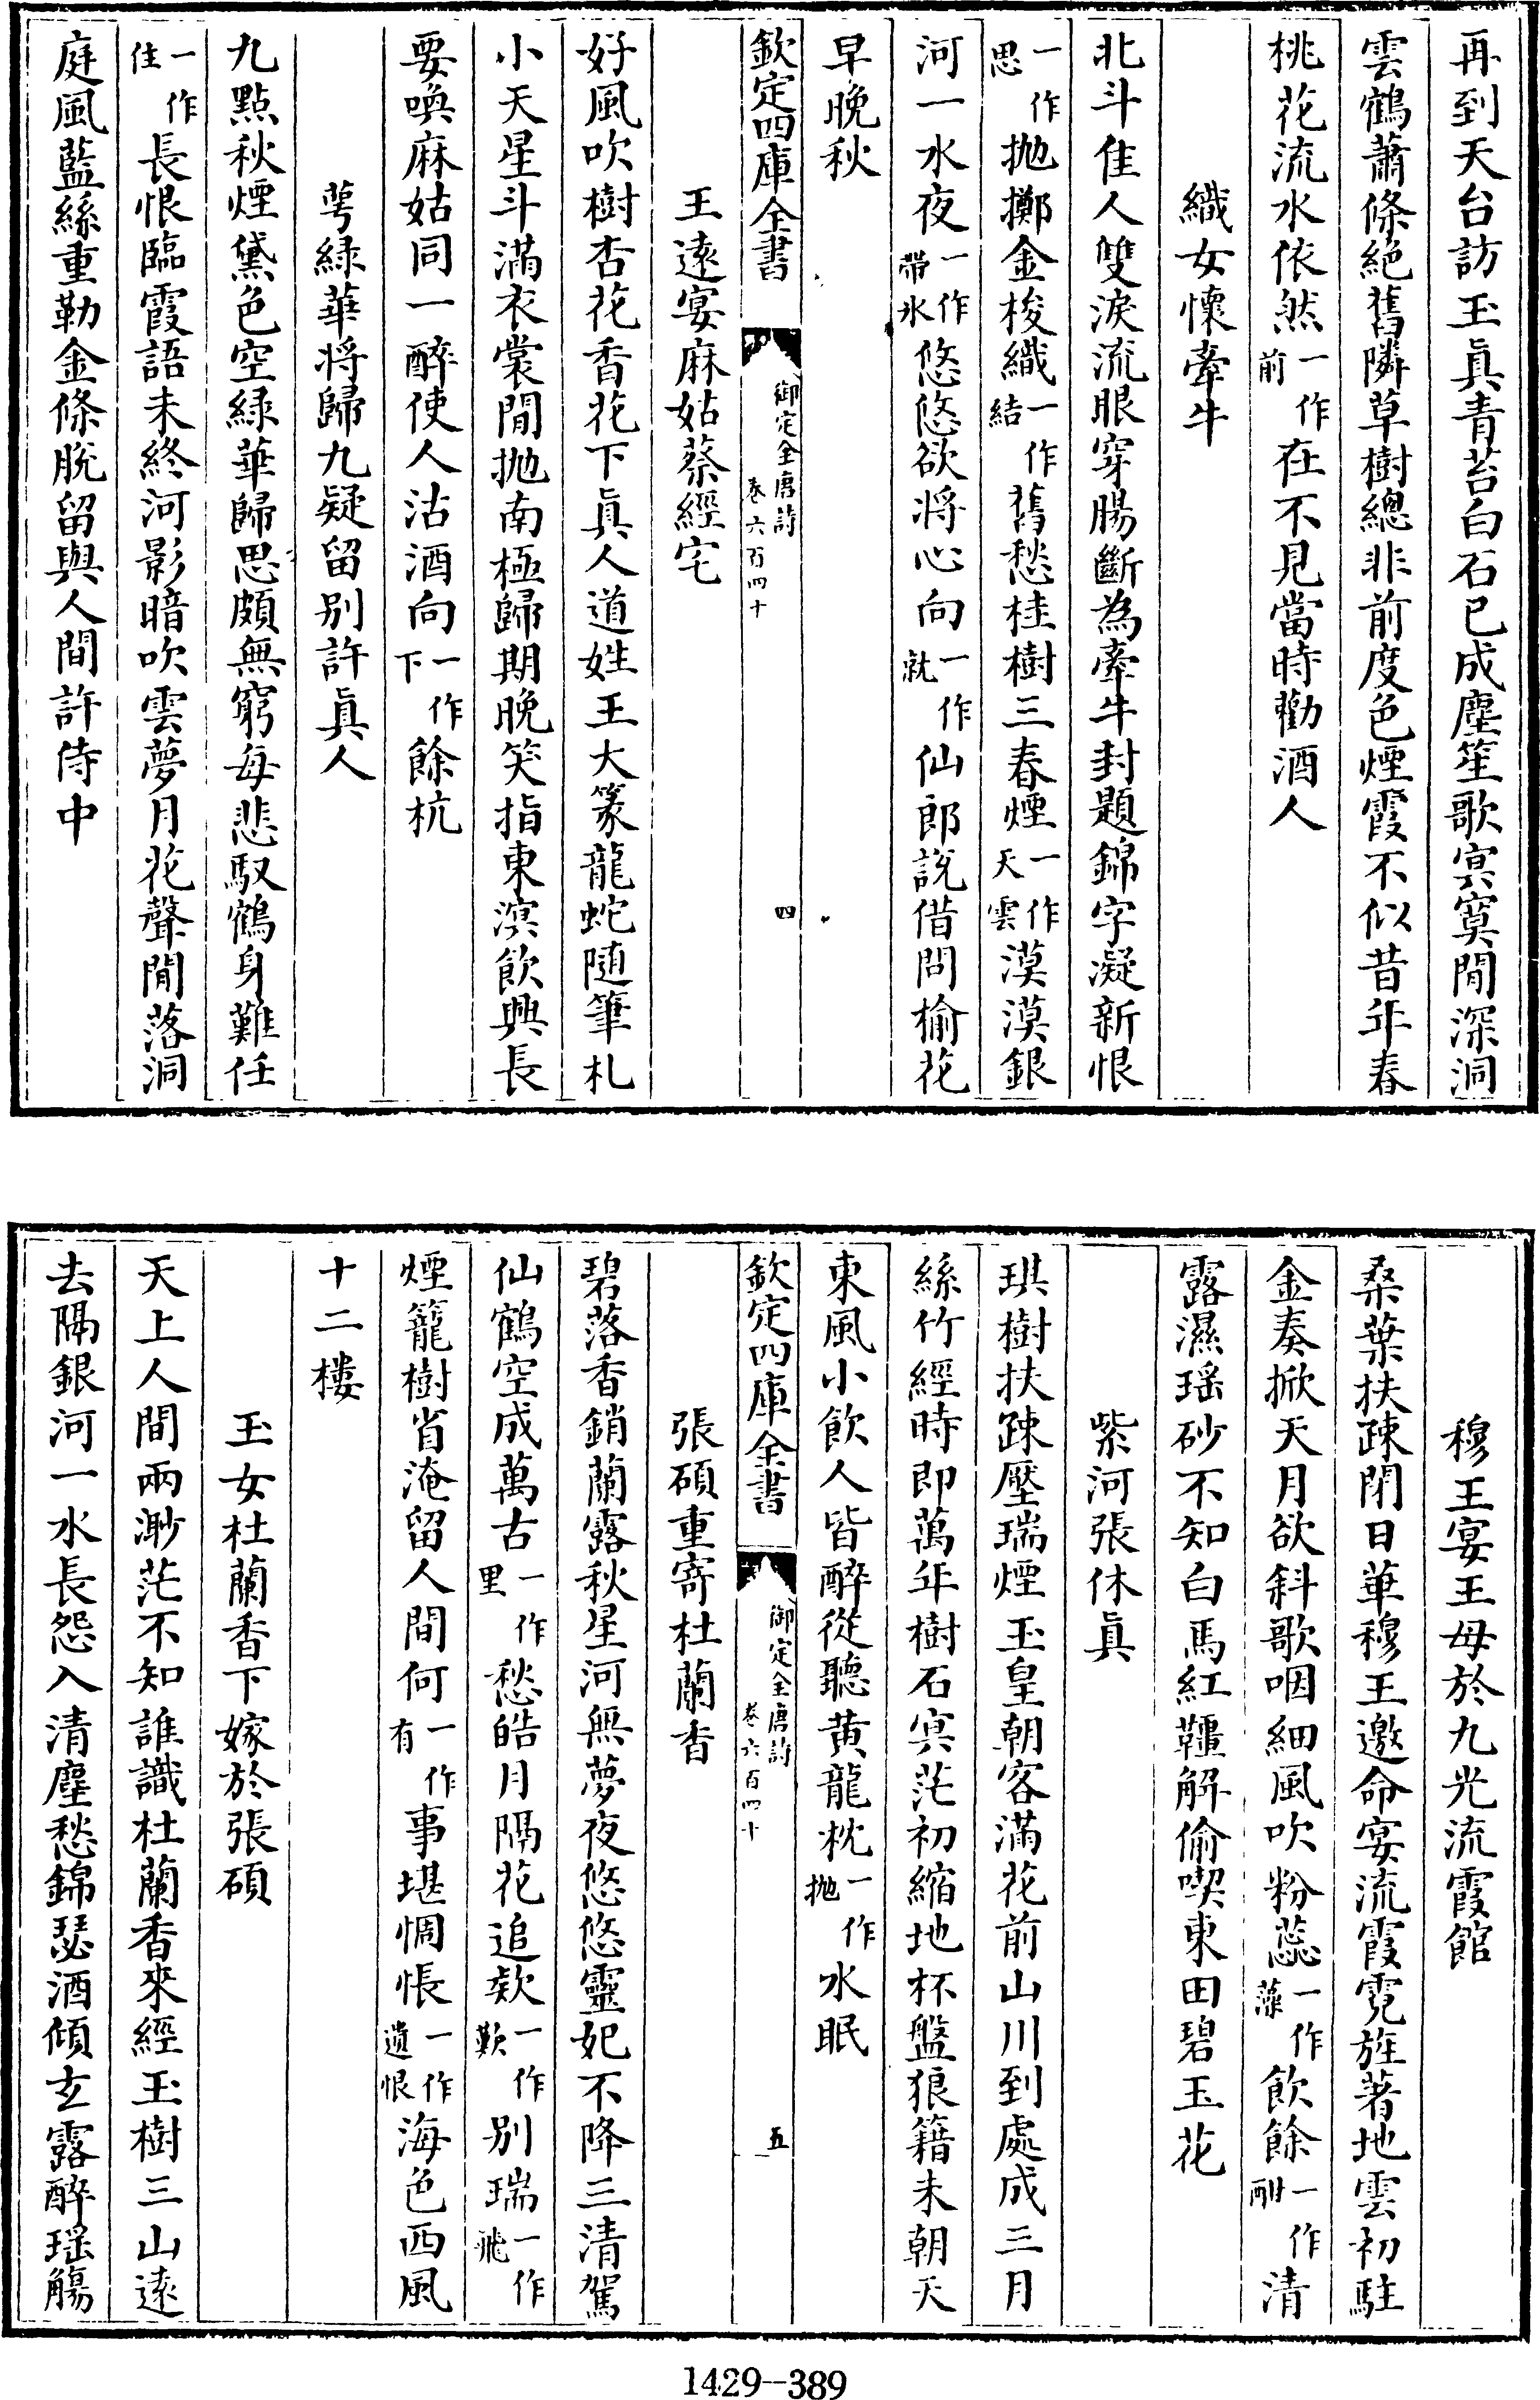 再到天台訪玉真青苔白石已成塵笙歌㝠寞閒深洞
雲鶴蕭條絶舊隣草樹總非前度色煙霞不似昔年春
桃花流水依然一作前在不見當時勸酒人
織女懷牽牛
北斗佳人雙淚流眼穿腸斷為牽牛封題錦字凝新恨
一作思拋擲金梭織一作結舊愁桂樹三春煙一作天雲漠漠銀
河一水夜一作帶水悠悠欲將心向一作就仙郎說借問榆花
早晚秋
欽定四庫全書
御定全唐詩
卷六百四十
四
王逺宴麻姑蔡經宅
好風吹樹杏花香花下真人道姓王大篆龍蛇隨筆札
小天星斗滿衣裳閒拋南極歸期晚笑指東溟飲興長
要喚麻姑同一醉使人沽酒向一作下餘杭
萼緑華将歸九疑留别許真人
九點秋煙黛色空緑華歸思頗無窮每悲馭鶴身難任
一作住長恨臨霞語未終河影暗吹雲夢月花聲閒落洞
庭風藍絲重勒金條脫留與人間許侍中
穆王宴王母於九光流霞館
桑葉扶疎閉日華穆王邀命宴流霞霓旌著地雲初駐
金奏掀天月欲斜歌咽細風吹粉蕊一作藻飲餘一作酣清
露濕瑶砂不知白馬紅韁解偷喫東田碧玉花
紫河張休真
琪樹扶疎壓瑞煙玉皇朝客滿花前山川到處成三月
絲竹經時即萬年樹石㝠茫初縮地杯盤狼籍未朝天
東風小飲人皆醉從聽黄龍枕一作拋水眠
欽定四庫全書
御定全唐詩
卷六百四十
五
張碩重寄杜蘭香
碧落香銷蘭露秋星河無夢夜悠悠靈妃不降三清駕
仙鶴空成萬古一作里愁皓月隔花追欸一作歎别瑞一作飛
煙籠樹省淹留人間何一作有事堪惆悵一作遺恨海色西風
十二樓
玉女杜蘭香下嫁於張碩
天上人間兩渺茫不知誰識杜蘭香來經玉樹三山逺
去隔銀河一水長怨入清塵愁錦瑟酒傾玄露醉瑶觴
1429--389